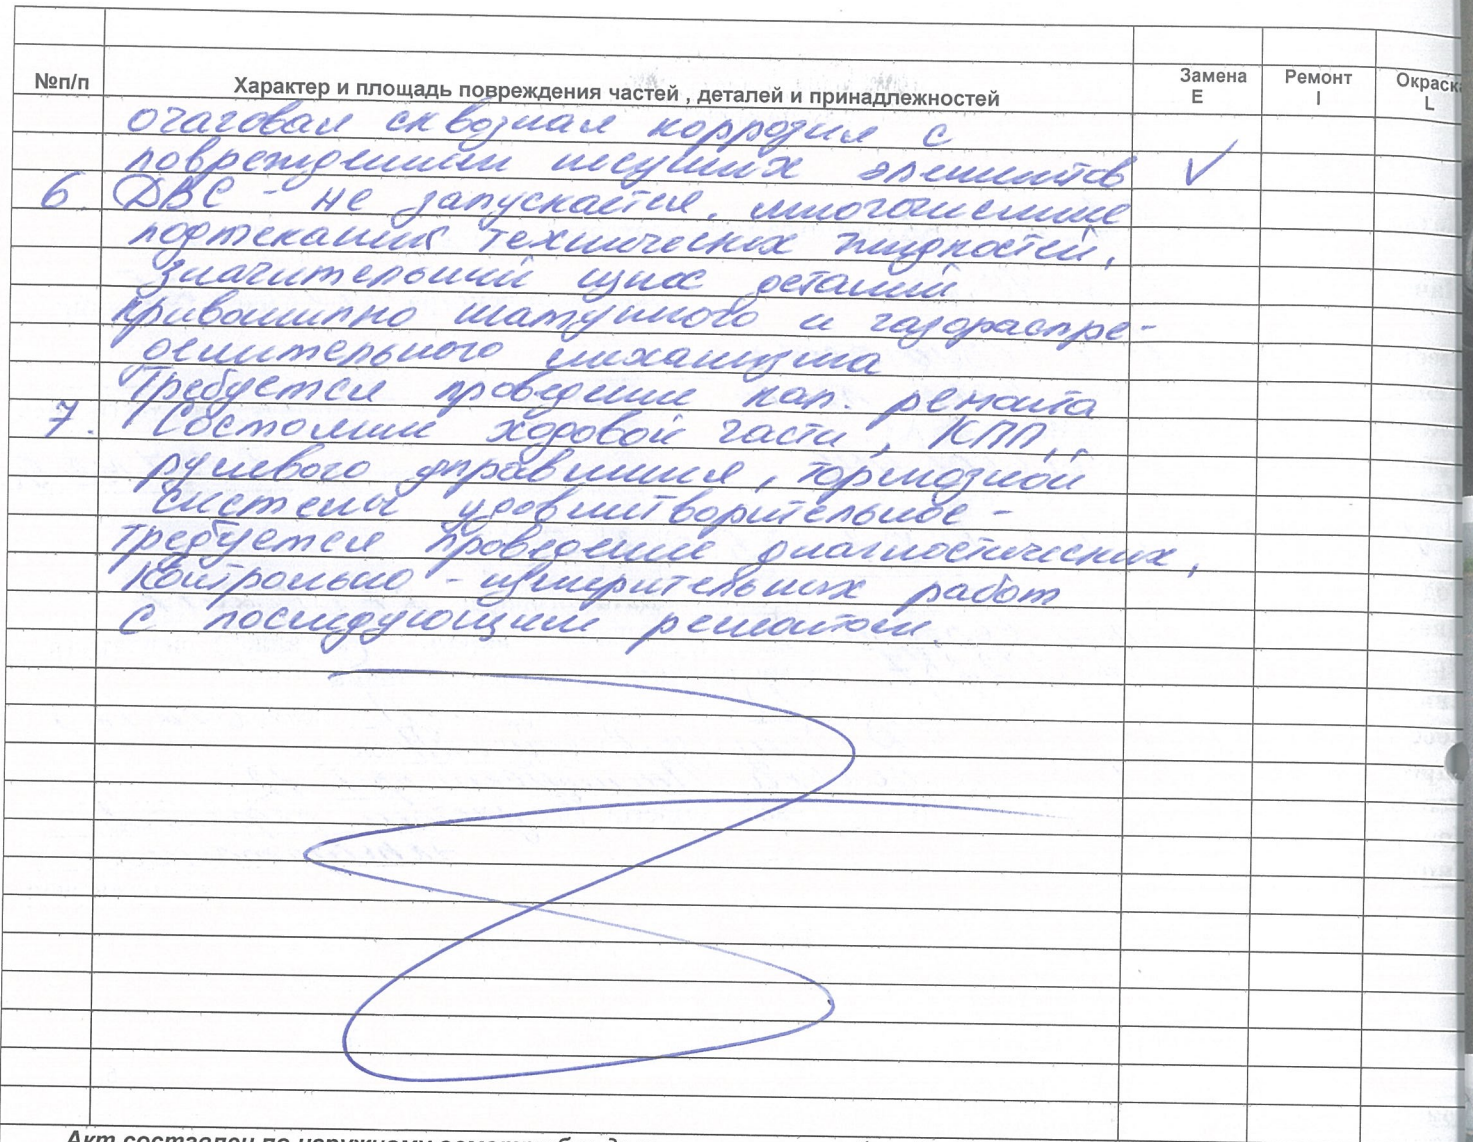 №п/п Характер и площадь повреждения частей , деталей и принадлежностей Замена E Ремонт I Окраска L
очаговая сквозная коррозия с
повреждением несущих элементов V
6. ДВС - не запускается, многочисленные
подтекания технических жидкостей,
значительный износ деталей
кривошипно шатунного и газораспре-
делительного механизма
Требуется проведение кап. ремонта
7. Состояние ходовой части, КПП,
рулевого управления, тормозной
системы удовлетворительное -
требуется проведение диагностических,
контрольно - измерительных работ
с последующим ремонтом.
Акт составлен по наружному